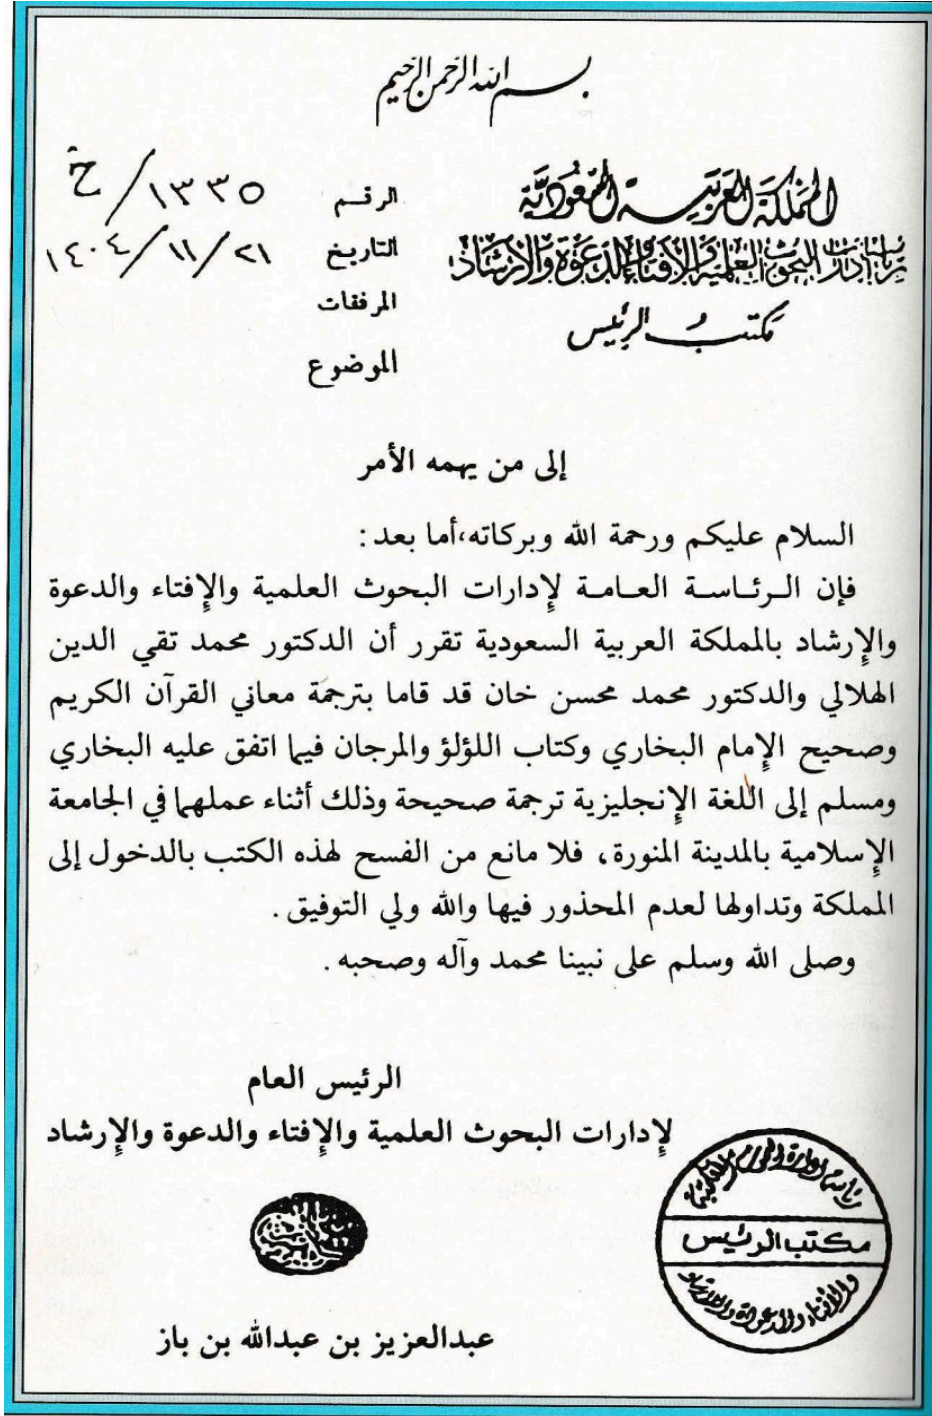 بسم الله الرحمن الرحيم
المملكة العربية السعودية
رئاسة إدارات البحوث العلمية والإفتاء والدعوة والإرشاد
مكتب الرئيس
الرقم ١٣٣٥/خ
التاريخ ٢١/١١/١٤٠٤
المرفقات
الموضوع
إلى من يهمه الأمر
السلام عليكم ورحمة الله وبركاته،أما بعد:
فإن الـرئـاسـة العـامـة لإدارات البحوث العلمية والإفتاء والدعوة
والإرشاد بالمملكة العربية السعودية تقرر أن الدكتور محمد تقي الدين
الهلالي والدكتور محمد محسن خان قد قاما بترجمة معاني القرآن الكريم
وصحيح الإمام البخاري وكتاب اللؤلؤ والمرجان فيما اتفق عليه البخاري
ومسلم إلى اللغة الإنجليزية ترجمة صحيحة وذلك أثناء عملهما في الجامعة
الإسلامية بالمدينة المنورة، فلا مانع من الفسح لهذه الكتب بالدخول إلى
المملكة وتداولها لعدم المحذور فيها والله ولي التوفيق.
وصلى الله وسلم على نبينا محمد وآله وصحبه.
الرئيس العام
لإدارات البحوث العلمية والإفتاء والدعوة والإرشاد
مكتب الرئيس
والافتاء والدعوة والارشاد
عبدالعزيز بن عبدالله بن باز